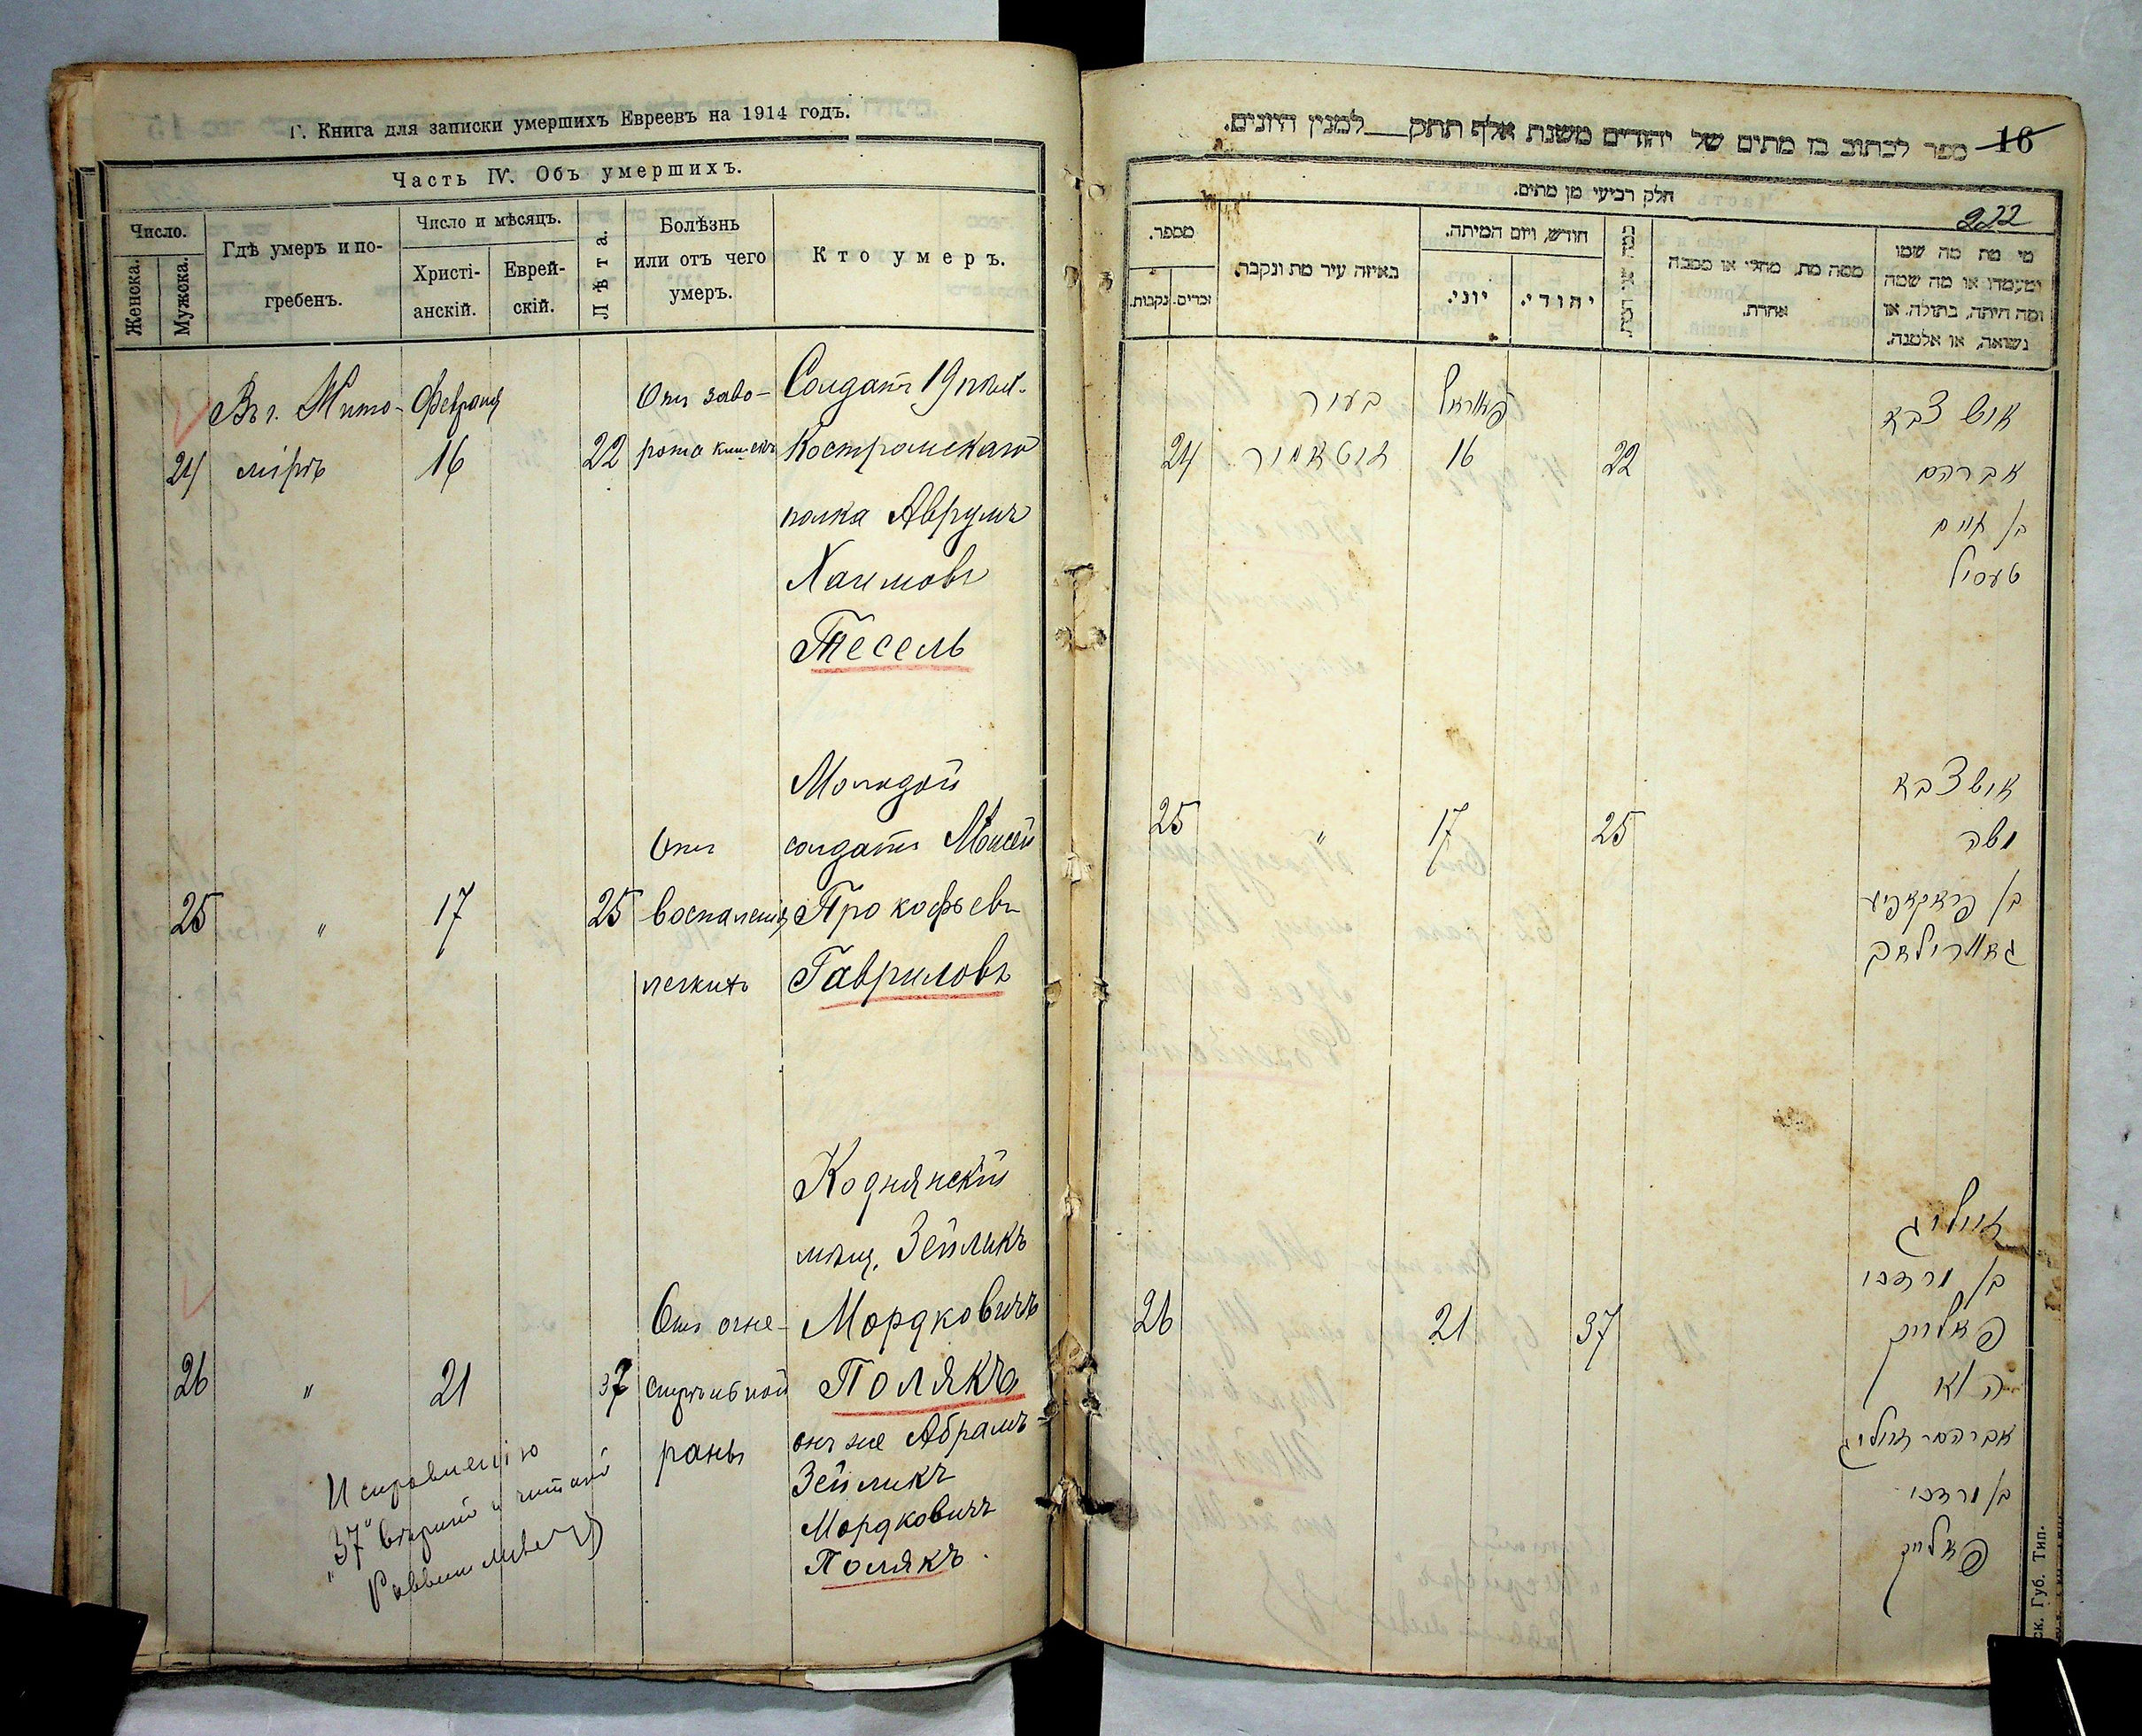 Г. Книга для записки умершихъ Евреевъ на 1914 годъ.
Часть IV. Объ умершихъ.
Число.
Женска.
Мужска.
Гдѣ умеръ и по-
гребенъ.
Число и мѣсяцъ.
Христі-
анскій.
Еврей-
скій.
Лѣта.
Болѣзнь
или отъ чего
умеръ.
Кто умеръ.
Въ г. Жито- Февраля Отъ заво- Солдатъ 19 пѣхот.
24 мірѣ 16 22 рота кишекъ Костромскаго
полка Аврумъ
Хаимовъ
Тесель
Молодой
Отъ солдатъ Моисей
25 " 17 25 воспаленія Прокофьевъ
легкихъ Гавриловъ
Коднянскій
мѣщ. Зейликъ
Отъ огне- Мордковичъ
26 " 21 37 стрѣльной Полякъ
раны онъ же Абрамъ-
Зейликъ
Мордковичъ
Полякъ.
Исправленію
"37" вѣрить и читать
Раввинъ
16
ספר לכתוב בו מתים של יהודים משנת אלף תתק___למנין היונים.
חלק רביעי מן מתים.
222
מספר.
נקבות.
זכרים.
באיזה עיר מת ונקבר.
חודש, ויום המיתה.
יוני.
יהודי.
כמה שני המת
ממה מת, מחלי או מסבה
אחרת.
מי מת מה שמו
ומעמדו או מה שמה
ומה היתה, בתולה, או
נשואה, או אלמנה.
בעיר פעווראל איש צבא
24 זיטאמיר 16 22 אברהם
בן חיים
טעסיל
איש צבא
25 " 17 25 משה
בן פראקאפיע
גאוורילאב
זיילינג
בן מרדכי
26 21 37 פאליאק
הוא
אברהם זייליג
בן מרדכי
פאליאק
ск. Губ. Тип.